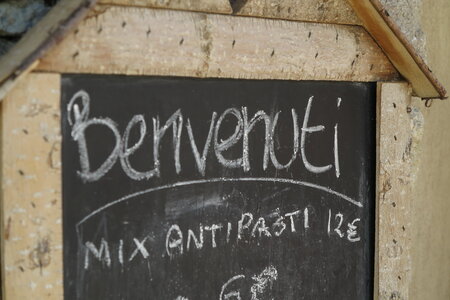 Benvenuti
MIX ANTIPASTI 12€
€